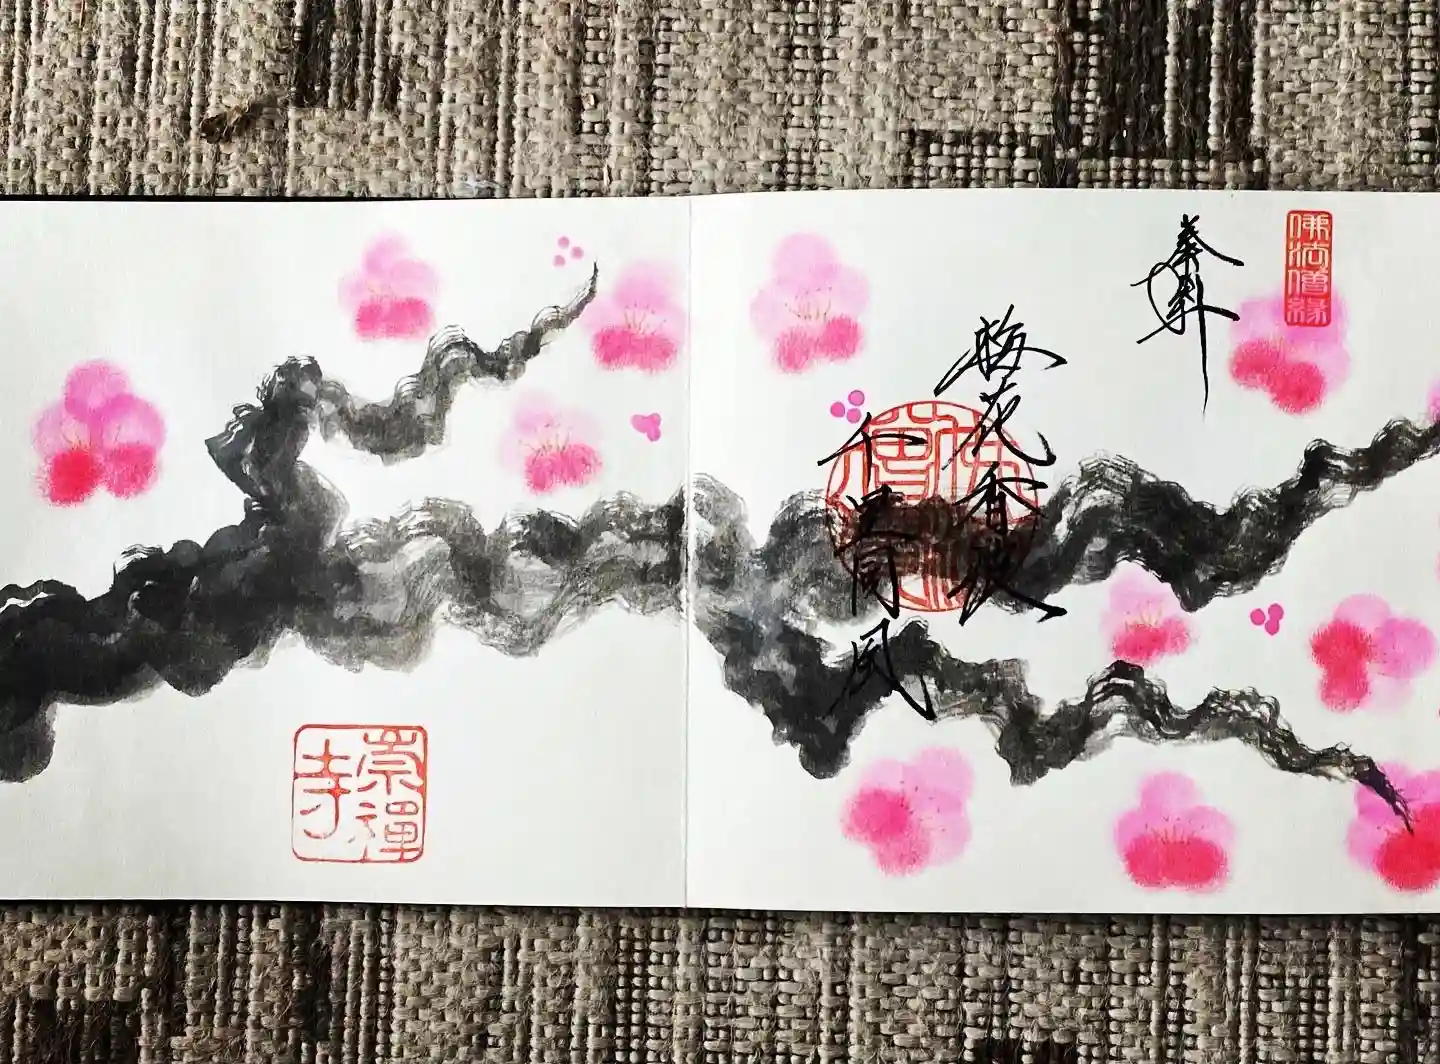 奉拝
佛法僧縁
梅花香
千里同風
崇禪寺